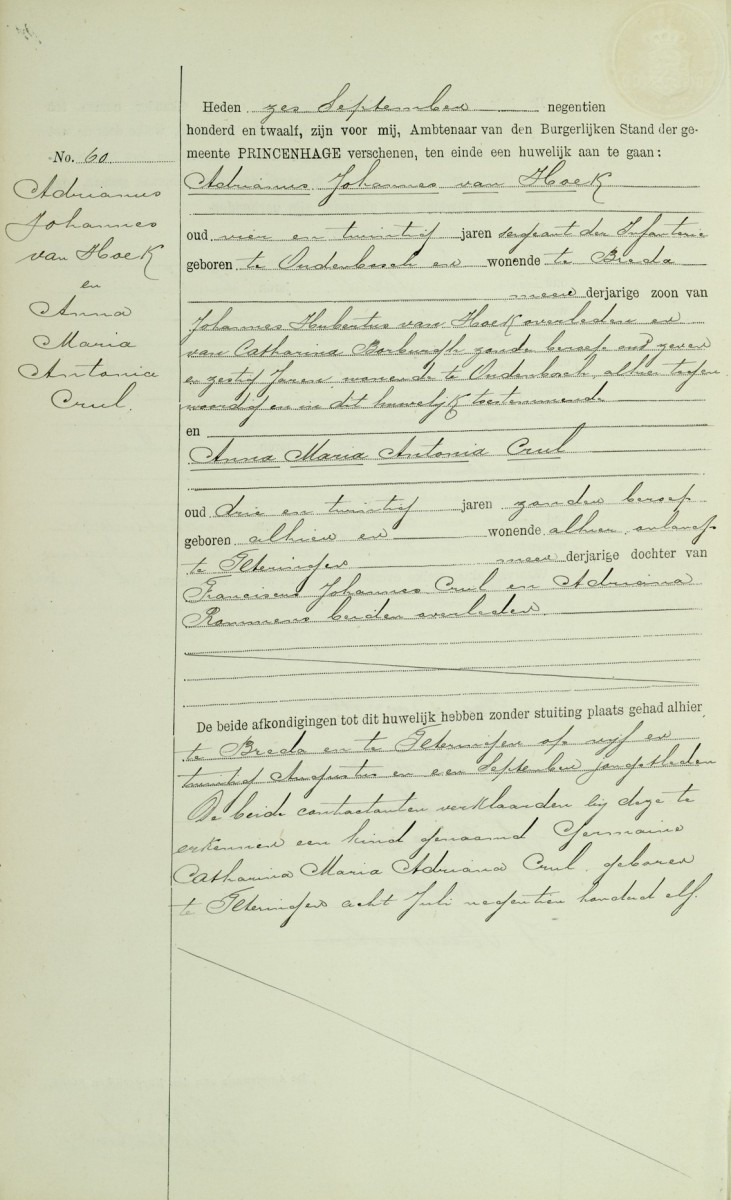 No. 60
Adrianus
Johannes
van Hoek
en
Anna
Maria
Antonia
Crul.
Heden zes September negentien
honderd en twaalf, zijn voor mij, Ambtenaar van den Burgerlijken Stand der ge-
meente PRINCENHAGE verschenen, ten einde een huwelijk aan te gaan:
Adrianus Johannes van Hoek
oud vier en twintig jaren sergeant der Infanterie
geboren te Oudenbosch en wonende te Breda
meer derjarige zoon van
Johannes Hubertus van Hoek overleden en
van Catharina Borburgh zonder beroep oud zeven
en zestig Jaren wonende te Oudenbosch, alhier tegen
woordig en in dit huwelijk toestemmende
en
Anna Maria Antonia Crul
oud drie en twintig jaren zonder beroep
geboren alhier en wonende alhier, onlangs
te Teteringen meer derjarige dochter van
Franciscus Johannes Crul en Adriana
Rommens beiden overleden.
De beide afkondigingen tot dit huwelijk hebben zonder stuiting plaats gehad alhier
te Breda en te Teteringen op vijf en
twintig Augustus en een September jongstleden
De beide contractanten verklaarden bij deze te
erkennen een kind genaamd Germaine
Catharina Maria Adriana Crul, geboren
te Teteringen acht Juli negentien honderd elf.